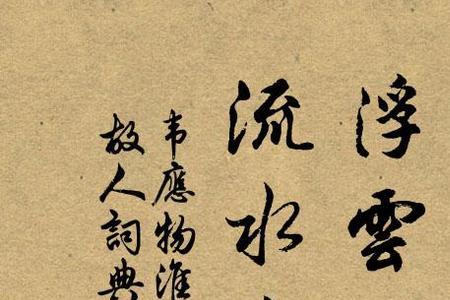 浮雲
流水
韦應物淮
故人詞典